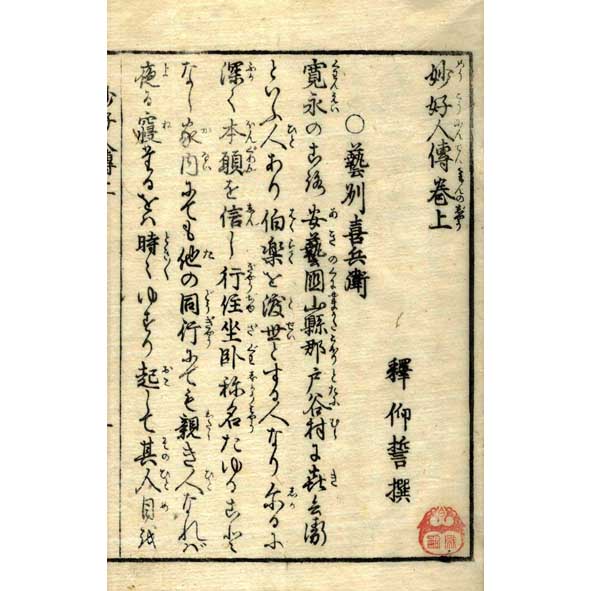 妙好人傳巻上
釋仰誓撰
○藝州喜兵衛
寛永のころ安藝國山縣郡戸谷村に喜兵衛
といふ人あり伯楽を渡世とする人なりしかるに
深く本願を信し行住坐臥称名たゆること
なし家内にても他の同行にても親き人なれば
夜る寝たるをバ時々ゆすり起して其人目を